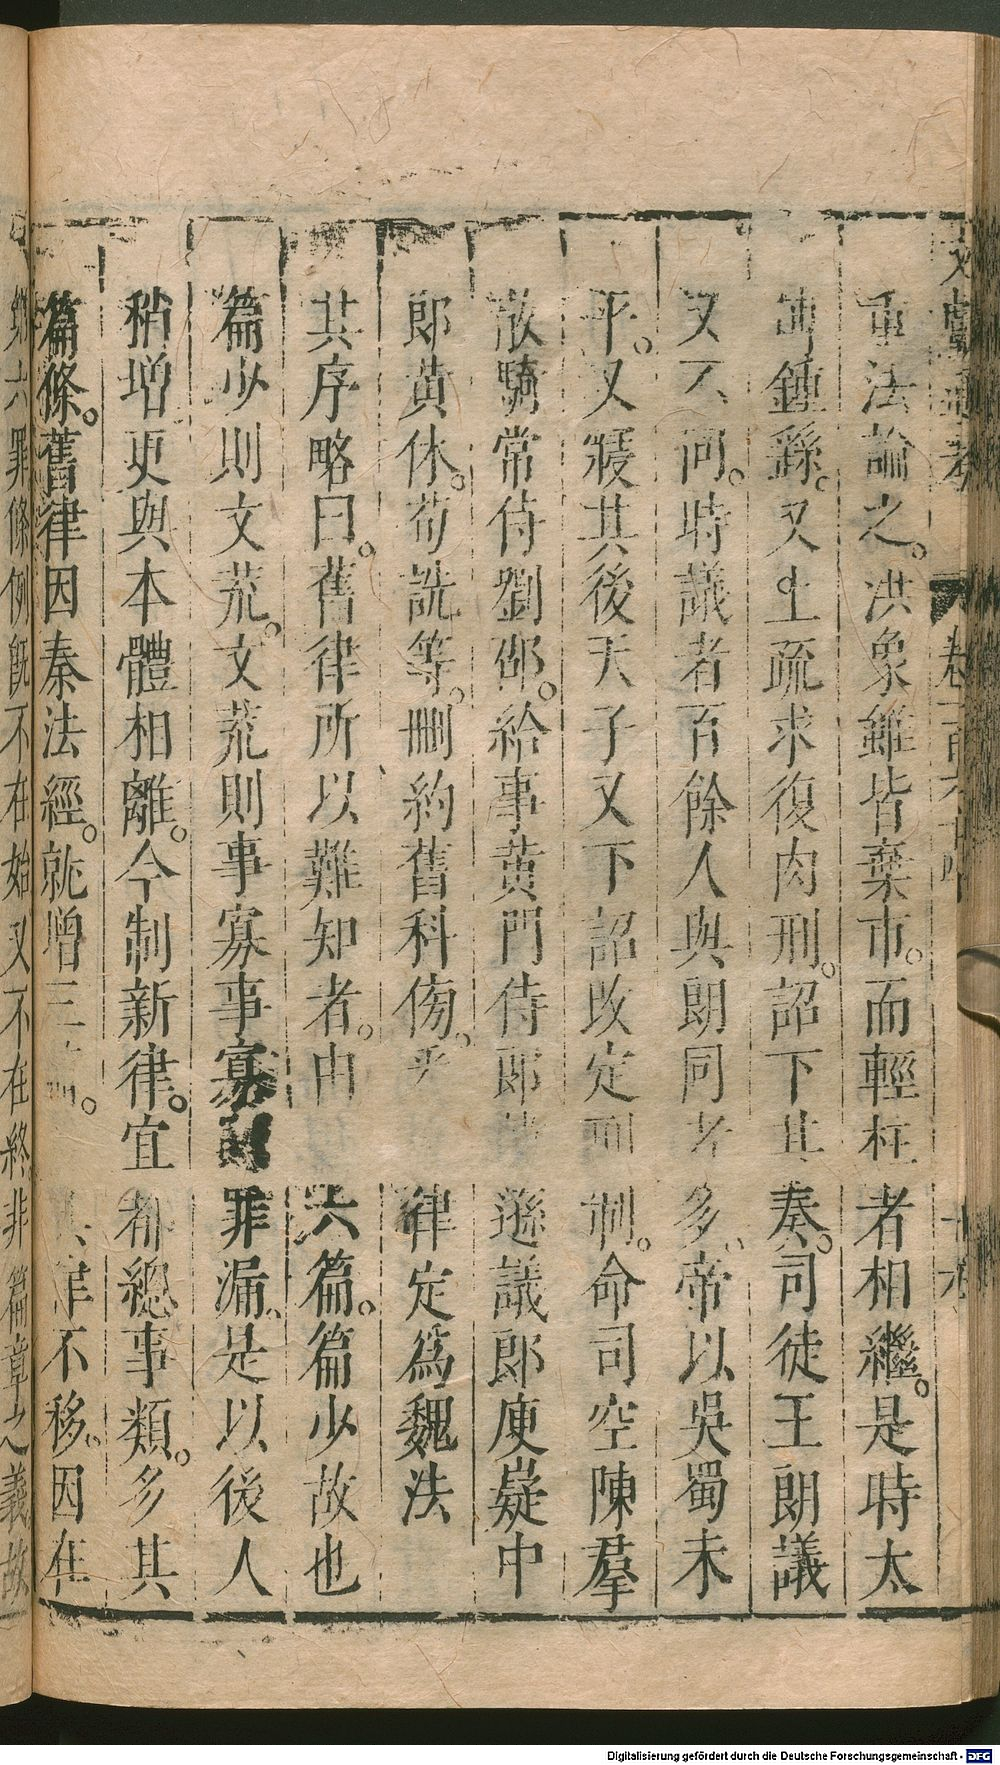 重法論之。洪象雖皆棄市。而輕枉者相繼。是時太
鍾繇。又上疏求復肉刑。詔下其奏。司徒王朗議
又不同。時議者百餘人與朗同者多。帝以吳蜀未
平。又寢其後天子又下詔改定刑制。命司空陳羣
散騎常侍劉邵。給事黃門侍郎韓遜議郎庾嶷中
郎黃休。荀詵等。刪約舊科傍采律定爲魏法
其序略曰。舊律所以難知者。由六篇。篇少故也
篇少則文荒。文荒則事寡事寡則罪漏。是以後人
稍增更與本體相離。今制新律。宜都總事類。多其
篇條。舊律因秦法經。就增三 不移。因在
第六罪條例既不在始又不在終非篇章之義故
Digitalisierung gefördert durch die Deutsche Forschungsgemeinschaft - DFG